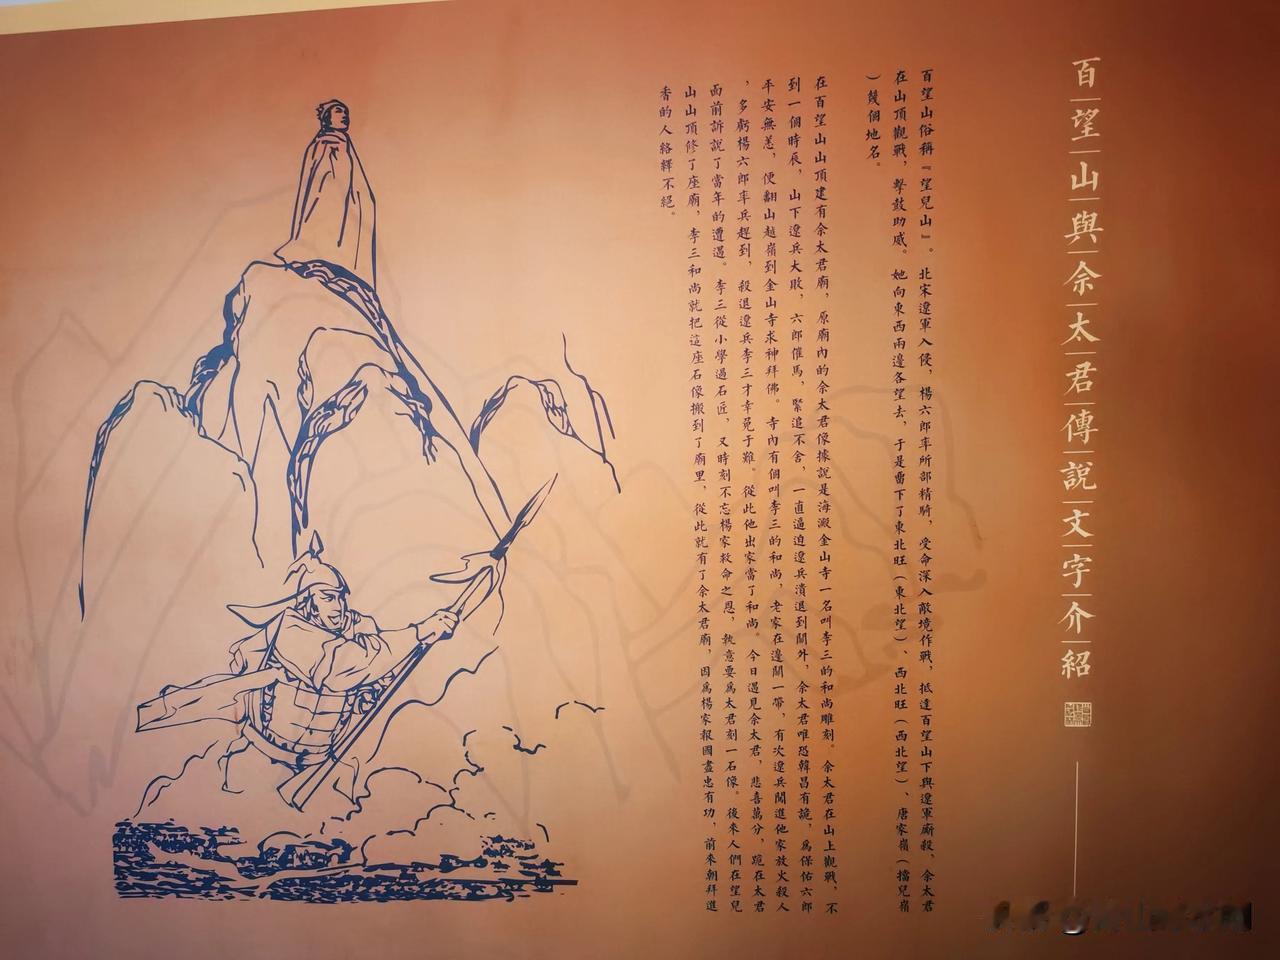 百望山與佘太君傳說文字介紹
百望山俗稱『望兒山』。北宋遼軍入侵，楊六郎率所部精騎，受命深入敵境作戰，抵達百望山下與遼軍廝殺，佘太君
在山頂觀戰，擊鼓助威。她向東西兩邊各望去，于是留下了東北旺（東北望）、西北旺（西北望）、唐家嶺（擋兒嶺
）幾個地名。
在百望山山頂建有佘太君廟，原廟內的佘太君像據說是海澱金山寺一名叫李三的和尚雕刻。佘太君在山上觀戰，不
到一個時辰，山下遼兵大敗，六郎催馬，緊追不舍，一直逼迫遼兵潰退到關外，佘太君唯恐韓昌有詭，爲保佑六郎
平安無恙，便翻山越嶺到金山寺求神拜佛。寺內有個叫李三的和尚，老家在邊關一帶，有次遼兵闖進他家放火殺人
，多虧楊六郎率兵趕到，殺退遼兵李三才幸免于難。從此他出家當了和尚。今日遇見佘太君，悲喜萬分，跪在太君
面前訴說了當年的遭遇。李三從小學過石匠，又時刻不忘楊家救命之恩，執意要爲太君刻一石像。後來人們在望兒
山山頂修了座廟，李三和尚就把這座石像搬到了廟里，從此就有了佘太君廟，因爲楊家報國盡忠有功，前來朝拜進
香的人絡繹不絕。